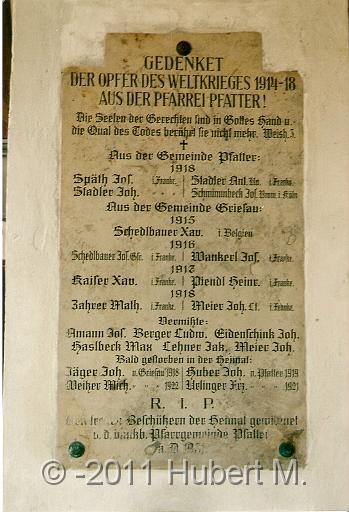 GEDENKET
DER OPFER DES WELTKRIEGES 1914-18
AUS DER PFARREI PFATTER!
Die Seelen der Gerechten sind in Gottes Hand u.
die Qual des Todes berührt sie nicht mehr. Weish. 3.
Aus der Gemeinde Pfatter:
1918
Späth Jos. i. Franke. Stadler Ant. i. Franke.
Stadler Joh. " " Schwimmbeck Jos. i. Köln
Aus der Gemeinde Griesau:
1915
Schedlbauer Xav. i. Belgien
1916
Schedlbauer Jos. Gfr. i. Franke. Wankerl Jos. i. Franke.
1917
Kaiser Xav. i. Franke. Piendl Heinr. i. Franke.
1918
Zahrer Math. i. Franke. Meier Joh. Lt. i. Franke.
Vermißte:
Amann Jos. Berger Ludw. Eidenschink Joh.
Haslbeck Max Lehner Jak. Meier Joh.
Bald gestorben in der Heimat:
Jäger Joh. v. Griesau 1918 Huber Joh. v. Pfatter 1919
Weiker Mich. " " 1922 Urlinger Frz. " " 1921
R. I. P.
Den treuen Beschützern der Heimat gewidmet
v. d. dankb. Pfarrgemeinde Pfatter
A. D.
© -2011 Hubert M.